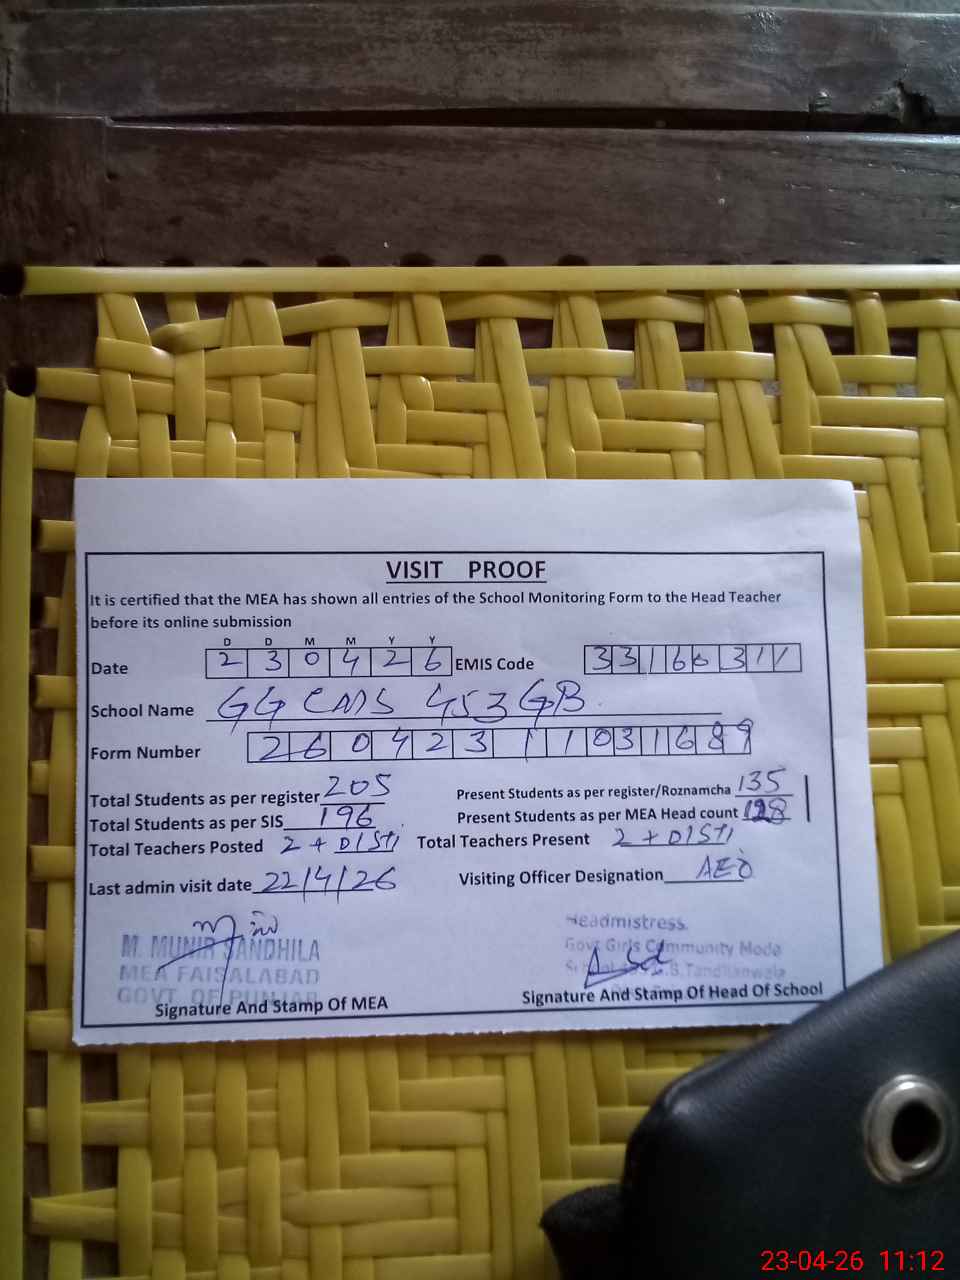 VISIT PROOF
It is certified that the MEA has shown all entries of the School Monitoring Form to the Head Teacher
before its online submission
D D M M Y Y
Date 2 3 0 4 2 6 EMIS Code 3 3 1 6 0 3 1 1
School Name GG CMS 453 GB
Form Number 2 6 0 4 2 3 1 1 0 3 1 6 8 9
Total Students as per register 205 Present Students as per register/Roznamcha 135
Total Students as per SIS 196 Present Students as per MEA Head count 128
Total Teachers Posted 2 + DISTI Total Teachers Present 2 + DISTI
Last admin visit date 22/4/26 Visiting Officer Designation AEO
M. MUNIR SANDHILA
MEA FAISALABAD
GOVT OF PUNJAB
Signature And Stamp Of MEA
Headmistress
Govt Girls Community Mode
School G.B. Tandlianwala
Signature And Stamp Of Head Of School
23-04-26 11:12